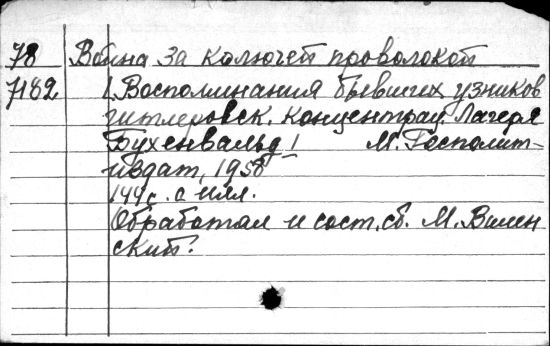 78 Война за колючей проволокой
7182 /Воспоминания бывших узников
гитлеровск. концентрац. лагеря
Бухенвальд/ М. Госполит-
издат, 1958
144 с. с илл.
Обработал и сост. сб. М. Вилен
ский.